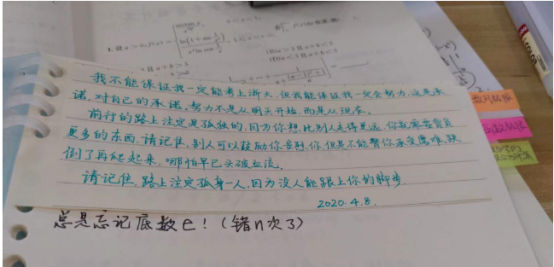 我不能保证我一定能考上浙大,但我能保证我一定会努力,这是承
诺,对自己的承诺,努力不是从明天开始,而是从现在。
前行的路上注定是孤独的,因为你想比别人走得更远,你就需要背负
更多的东西,请记住,别人可以鼓励你安慰你,但是不能帮你承受苦难,跌
倒了再爬起来,哪怕早已头破血流。
请记住,路上注定孤身一人,因为没人能跟上你的脚步
2020.4.8.
总是忘记底数e!(错n次了)